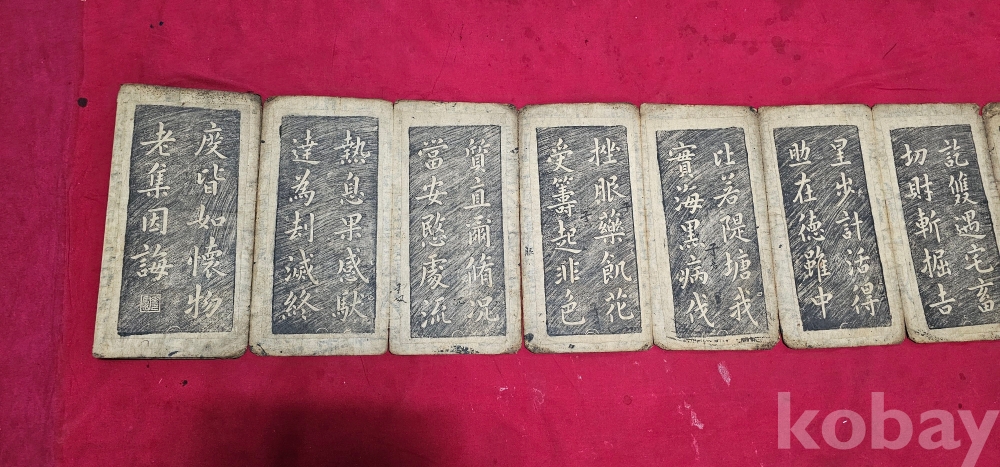 訖雙遇宅畜
切財斬掘吉
呈步計活得
助在德雖中
比若隄塘我
實海黑病伐
挫服藥飢花
受籌起非色
質直爾脩況
當安愍處流
熱息果感馱
達為刦滅終
度皆如懷物
老集因誨
kobay